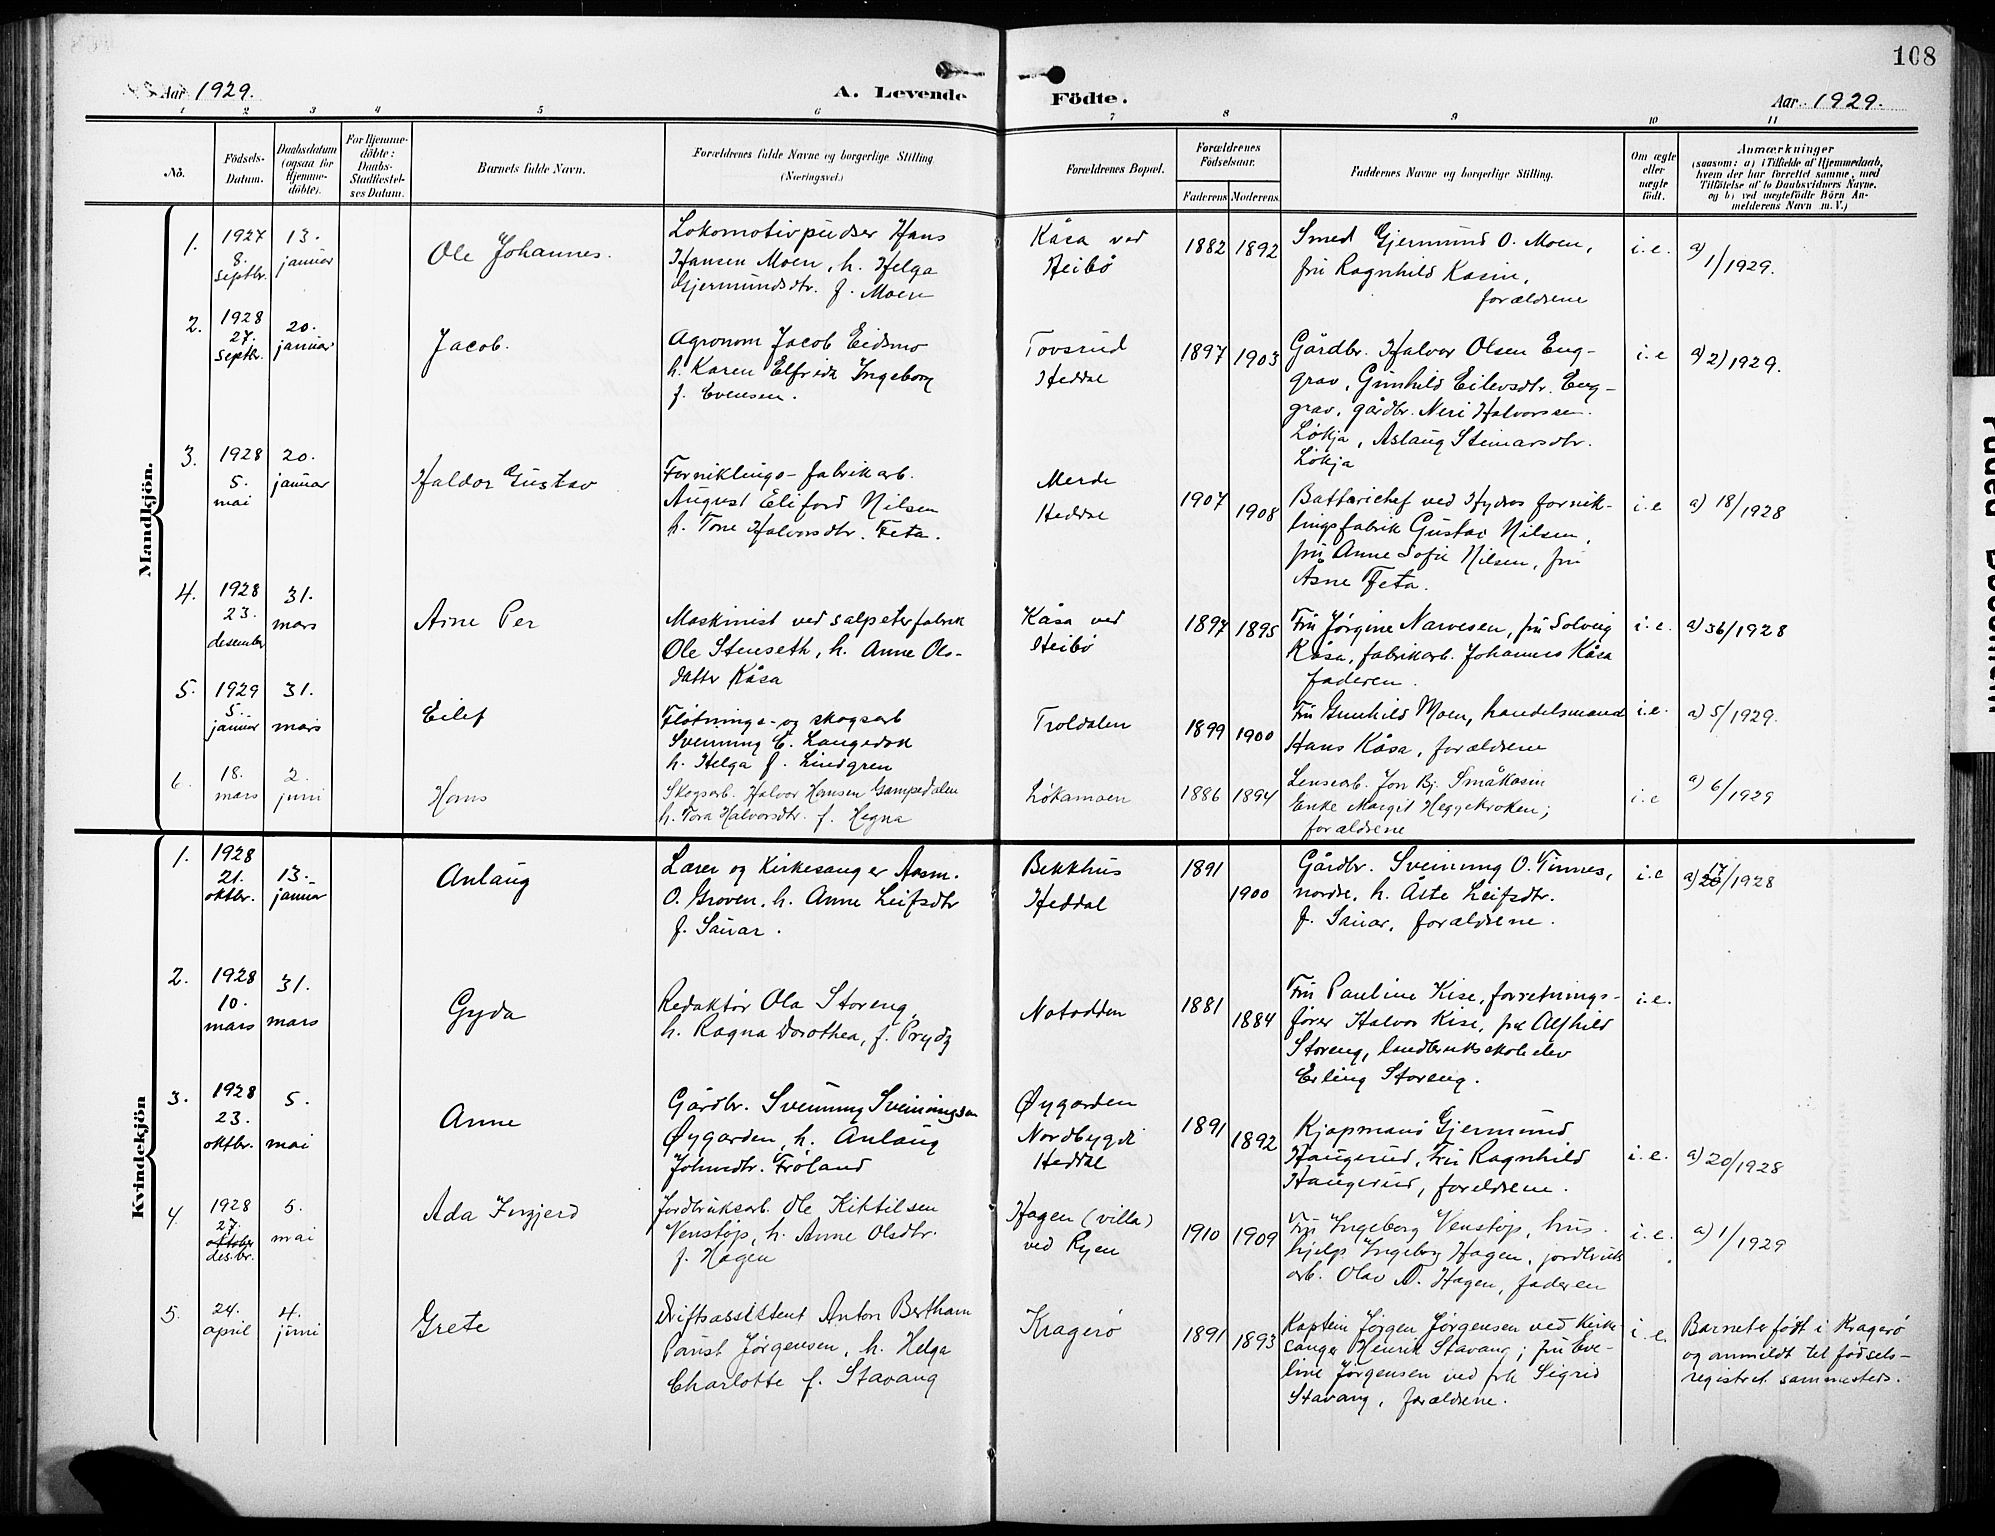 108
Aar 1929.
A. Levende Födte.
Aar 1929.
1 2 3 4 5 6 7 8 9 10 11
No.
Födsels-
Datum.
Daabsdatum
(ogsaa for
Hjemme-
döbte).
For Hjemme-
döbte:
Daabs-
Stadfæstel-
ses Datum.
Barnets fulde Navn.
Forældrenes fulde Navne og borgerlige Stilling
(Næringsvei.)
Forældrenes Bopæl.
Forældrenes
Födselsaar.
Faderens Moderens
Faddernes Navne og borgerlige Stilling.
Om ægte
eller
uægte
födt.
Anmærkninger
(saasom: a) i Tilfælde af Hjemmedaab,
hvem der har forrettet samme, med
Tilföielse af to Daabsvidners Navne.
og b) ved uægtefödte Börn An-
melderens Navn m. V.)
Mandkjön.
1.
1927
8.
septbr.
13.
januar
Ole Johannes.
Lokomotivpudser Hans
Hansen Moen, h. Helga
Gjermundsdtr. f. Moen
Kåsa ved
Heibø
1882 1892
Smed Gjermund O. Moen,
fru Ragnhild Kasin,
forældrene
i.e.
a) 1/1929.
2.
1928
27.
septbr.
20.
januar
Jacob.
Agronom Jacob Eidsmo
h. Karen Elfrida Ingeborg
f. Evensen.
Tovsrud
Heddal
1897 1903
Gårdbr. Halvor Olsen Eng-
grav, Gunhild Eilevsdtr. Eng-
grav, gårdbr. Neri Halvorssen
Løkja, Aslaug Steinarsdtr.
Løkja
i.e
a) 2/1929.
3.
1928
5.
mai
20.
januar
Haldor Gustav
Forniklings-fabrikarb.
August Eliford Nilsen
h. Tone Halvorsdtr. Feta.
Merde
Heddal
1907 1908
Batterichef ved Hydros fornik-
lingsfabrik Gustav Nilsen,
fru Anne Sofie Nilsen, fru
Åsne Feta.
i.e
a) 18/1928
4.
1928
23.
desember
31.
mars
Arne Per
Maskinist ved salpeterfabrik
Ole Stenseth, h. Anne Ols-
datter Kåsa
Kåsa ved
Heibø
1897 1895
Fru Jørgine Narvesen, fru Solveig
Kåsa, fabrikarb. Johannes Kåsa
faderen.
i.e.
a) 36/1928
5.
1929
5.
januar
31.
mars
Eilef
Fløtnings- og skogsarb
Sveinung E. Langedok
h. Helga f. Lindgren
Troldalen
1899 1900
Fru Gunhild Moen, handelsmand
Hans Kåsa, forældrene
i.e.
a) 5/1929.
6.
18.
mars
2.
juni
Hans
Skogsarb. Halvor Hansen Gampedalen
h. Tora Halvorsdtr. f. Hegna
Løkamoen
1886 1894
Lensearb. Jon Bj. Småkasin
Enke Margit Heggekroken;
forældrene
i.e
a) 6/1929
Kvindekjön
1.
1928
21.
oktbr.
13.
januar
Anlaug
Lærer og Kirkesanger Aasm.
O. Groven, h. Anne Leifsdtr
f. Sauar.
Bekkhus
Heddal
1891 1900
Gårdbr. Sveinung O. Tinnes,
nordre, h. Åste Leifsdtr.
f. Sauar, forældrene.
i.e
a) 17/1928
2.
1928
10.
mars
31.
mars
Gyda
Redaktør Ola Storeng,
h. Ragna Dorothea, f. Prydz
Notodden
1881 1884
Fru Pauline Kise, forretnings-
fører Halvor Kise, frk Alfhild
Storeng, landbruksskoleelev
Erling Storeng.
i.e.
3.
1928
23.
oktbr.
5.
mai
Anne
Gårdbr. Sveinung Sveinungsen
Øygarden, h. Anlaug
Johnsdtr. Frøland
Øygarden
Nordbygdi
Heddal
1891 1892
Kjøpmand Gjermund
Haugerud, fru Ragnhild
Haugerud, foreldrene.
i.e.
a) 20/1928
4.
1928
27.
oktober
des.br.
5.
mai
Ada Ingjerd
Jordbruksarb. Ole Kittilsen
Venstøp, h. Anne Olsdtr.
f. Hagen
Hagen (villa)
ved Ryen
1910 1909
Fru Ingeborg Venstøp, hus-
hjelp Ingeborg Hagen, jordbruks
arb. Olav A. Hagen, faderen
i.e.
a) 1/1929
5.
24.
april
4.
juni
Grete
Driftsassistent Anton Bertham
Paust Jørgensen, h. Helga
Charlotte f. Stavang
Kragerø
1891 1893
Kaptein Jørgen Jørgensen ved Kirke-
sanger Henrik Stavang; fru Eve-
line Jørgensen ved frk Sigrid
Stavang, forældrene.
i.e.
Barnet er født i Kragerø
og anmeldt til fødsels-
registret sammesteds.